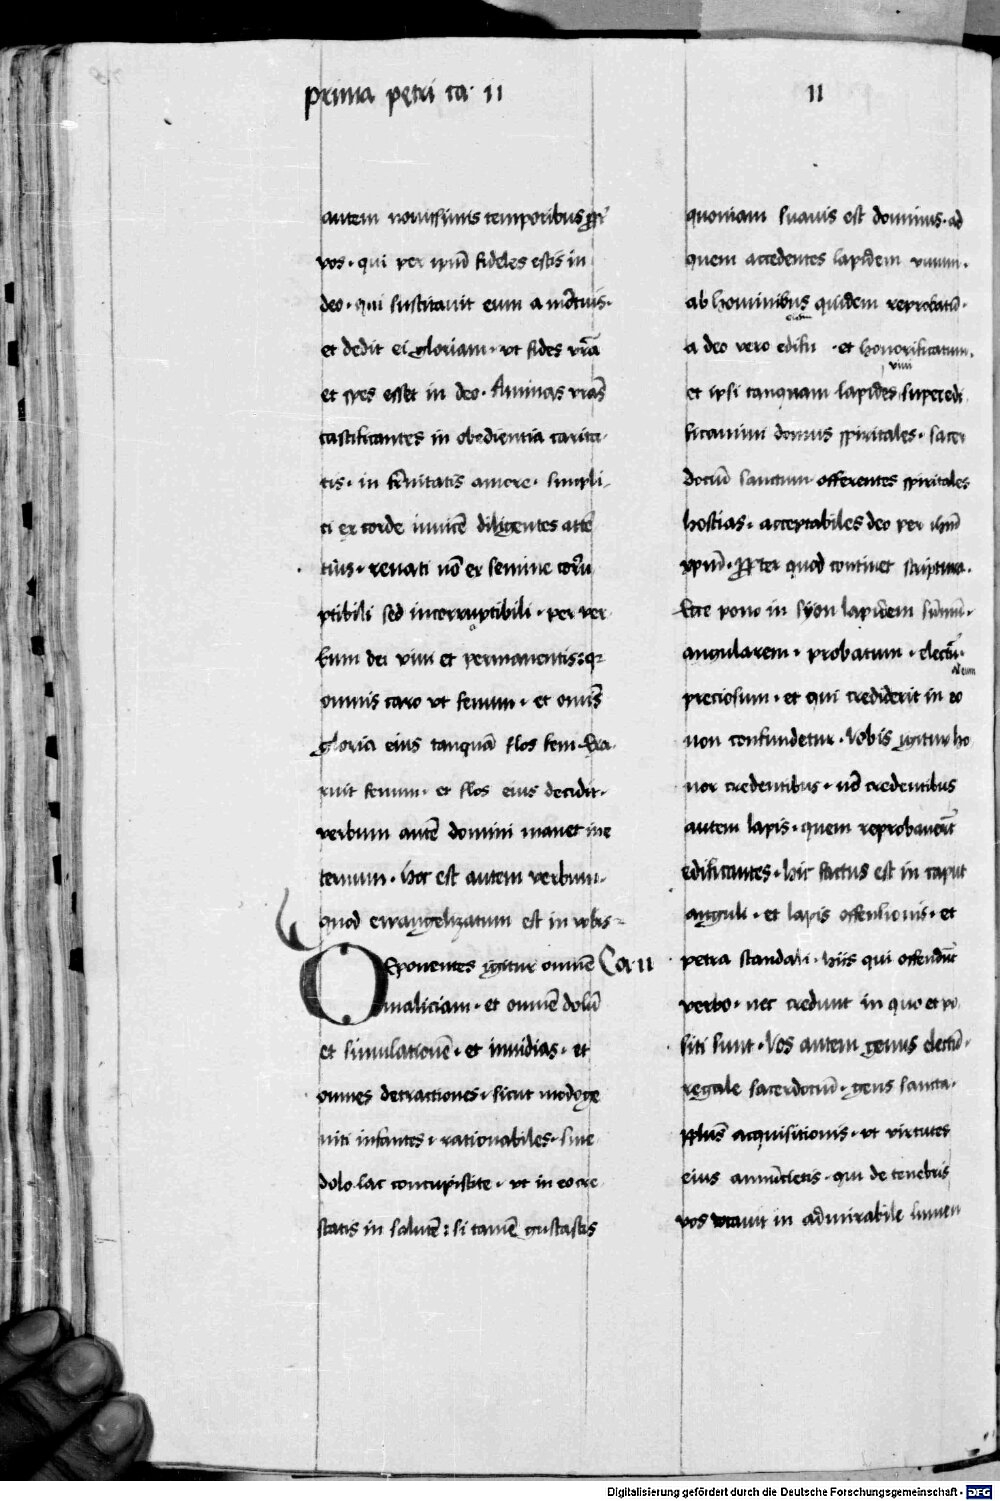 prima petri ca· ii
ii
autem novissimis temporibus ꝓpt̃
vos· qui per ip̄m̄ fideles estis in
deo· qui suscitavit eum a mõtuis·
et dedit ei gloriam· vt fides vr̄ā
et spes esset in deo· Animas vr̄as̄
castificantes in obedientia carita·
tis· in fr̄nitatis amore· simpli-
ci ex corde invicē diligentes attē
tius· renati nō ex semine corru
ptibili sed incorruptibili· per ver
bum dei vivi et permanentis: q2
omnis caro vt fenum· et omīs
gloria eius tanquā flos feni· Exa·
ruit fenum· et flos eius decidit·
verbum autē domini manet in e
ternum· hoc est autem verbum·
quod ewangelizatum est in vobis
Deponentes igitur omnē Ca· ii
maliciam· et omnē dolū
et simulationē· et invidias· et
omnes detractiones· sicut modo ge
niti infantes· rationabiles· sine
dolo lac concupiscite· vt in eo cre
scatis in salutē: si tamē gustastis
quoniam suavis est dominus· ad
quem accedentes lapidem vivum·
ab hominibus quidem reprobatū·
a deo vero
et honorificatum·
vivi
et ipsi tanquam lapides superedi
ficamini domus spiritales· sacer
dociū sanctum offerentes spiritales
hostias· acceptabiles deo per ihm̄
xpm̄· ꝓpter quod continet scriptura·
Ecce pono in syon lapidem sūmū·
angularem· probatum· electū·
preciosum· et qui crediderit in eo
non confundetur· Vobis igitur ho
nor credentibus· nō credentibus
autem lapis· quem reprobaverūt
edificantes· hic factus est in caput
anguli· et lapis offensionis· et
petra scandali· hiis qui offendūt
verbo· nec credunt in quo et po
siti sunt· Vos autem genus electū·
regale sacerdociū· gens sancta·
pplus̄ acquisitionis· vt virtutes
eius annūcietis· qui de tenebris
vos vocavit in admirabile lumen
Digitalisierung gefördert durch die Deutsche Forschungsgemeinschaft - DFG